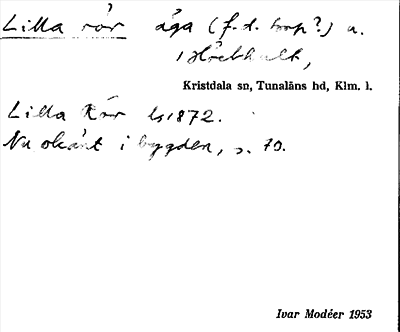 Lilla rör äga (f.d. torp?) u.
Hrebhult,
Kristdala sn, Tunaläns hd, Klm. l.
Lilla Rör ls 1872.
Nu okänt i bygden, s. 70.
Ivar Modéer 1953